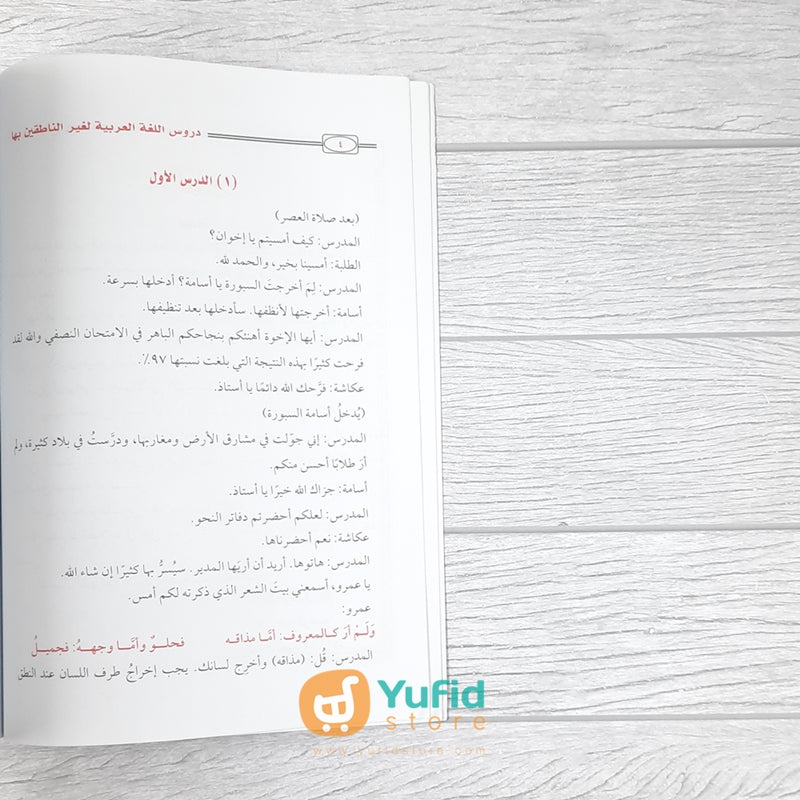 دروس اللغة العربية لغير الناطقين بها
٤
(١) الدرس الأول
(بعد صلاة العصر)
المدرس: كيف أمسيتم يا إخوان؟
الطلبة: أمسينا بخير، والحمد لله.
المدرس: لِمَ أخرجتَ السبورة يا أسامة؟ أدخلها بسرعة.
أسامة: أخرجتها لأنظفها. سأدخلها بعد تنظيفها.
المدرس: أيها الإخوة أهنئكم بنجاحكم الباهر في الامتحان النصفي والله لقد
فرحت كثيرًا بهذه النتيجة التي بلغت نسبتها ٩٧٪.
عكاشة: فرَّحك الله دائمًا يا أستاذ.
(يُدخلُ أسامة السبورة)
المدرس: إني جوّلت في مشارق الأرض ومغاربها، ودرَّستُ في بلاد كثيرة، ولم
أرَ طلابًا أحسن منكم.
أسامة: جزاك الله خيرًا يا أستاذ.
المدرس: لعلكم أحضرتم دفاتر النحو.
عكاشة: نعم أحضرناها.
المدرس: هاتوها. أريد أن أريَها المدير. سيُسرُّ بها كثيرًا إن شاء الله.
يا عمرو، أسمعني بيتَ الشعر الذي ذكرته لكم أمس.
عمرو:
وَلَمْ أرَ كالمعروف: أمَّا مذاقه فحلوٌ وأمَّا وجههُ: فجميلُ
المدرس: قُل: (مذاقه) وأخرِج لسانك. يجب إخراجُ طرف اللسان عند النطق
Yufid
store
www.yufidstore.com